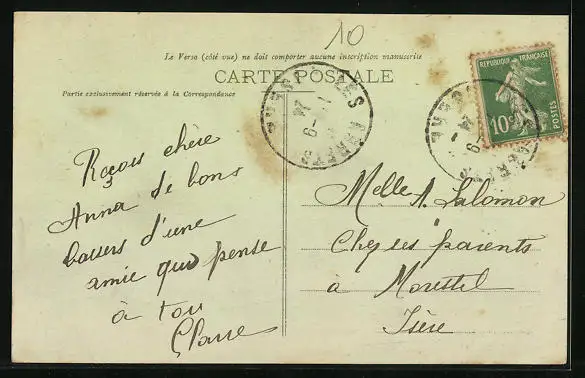 10
Le Verso (côté vue) ne doit comporter aucune inscription manuscrite
CARTE POSTALE
Partie exclusivement réservée à la Correspondance
REPUBLIQUE FRANÇAISE
10c
POSTES
Reçois chère
Anna de bons
baisers d'une
amie qui pense
à toi
Claire
Melle A. Salomon
Chez ses parents
à Morestel
Isère